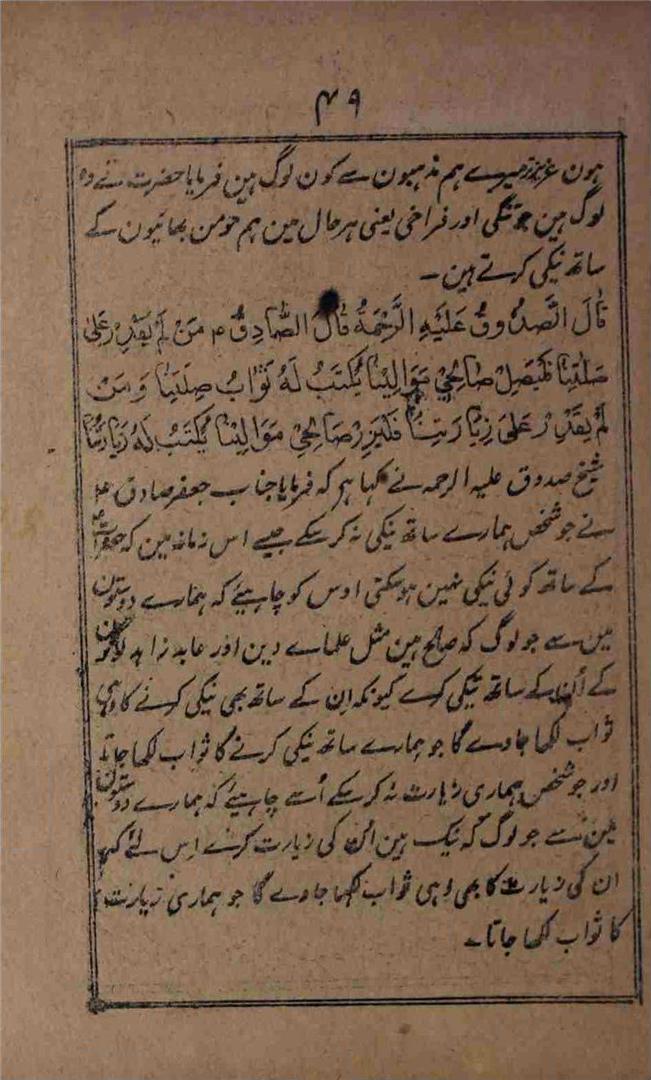 ۴۹
ہون عزیز میرے ہم مذہبون سے کون لوگ ہین فرمایا حضرت نے وہ
لوگ ہین جو تنگی اور فراخی یعنی ہر حال مین ہم مومن بھائیون کے
ساتھ نیکی کرتے ہین ۔
قَالَ الصَّدُوقُ عَلَيْهِ الرَّحْمَةُ قَالَ الصَّادِقُ ۴ مَنْ لَمْ يَقْدِرْ عَلىٰ
صِلَتِنَا فَلْيَصِلْ صَالِحِيْ مَوَالِيْنَا يُكْتَبُ لَهُ ثَوَابُ صِلَتِنَا وَمَنْ
لَمْ يَقْدِرْ عَلىٰ زِيَارَتِنَا فَلْيَزُرْ صَالِحِيْ مَوَالِيْنَا يُكْتَبُ لَهُ زِيَارَتُنَا
شیخ صدوق علیہ الرحمہ نے کہا ہر کہ فرمایا جناب جعفر صادق ۴
نے جو شخص ہمارے ساتھ نیکی نہ کر سکے جیسے اس زمانہ مین کہ
کے ساتھ کوئی نیکی نہین ہو سکتی اوس کو چاہیئے کہ ہمارے دوستون
مین سے جو لوگ کہ صالح ہین مثل علماے دین اور عابد زاہد
کے اُن کے ساتھ نیکی کرے کیونکہ اِن کے ساتھ بھی نیکی کرنے کا وہی
ثواب لکھا جاوے گا جو ہمارے ساتھ نیکی کرنے کا ثواب لکھا جاتا
اور جو شخص ہماری زیارت نہ کر سکے اُسے چاہیئے کہ ہمارے دوستون
مین سے جو لوگ کہ نیک ہین اُن کی زیارت کرے اِس لئے کہ
ان کی زیارت کا بھی وہی ثواب لکھا جاوے گا جو ہماری زیارت
کا ثواب لکھا جاتا ۔